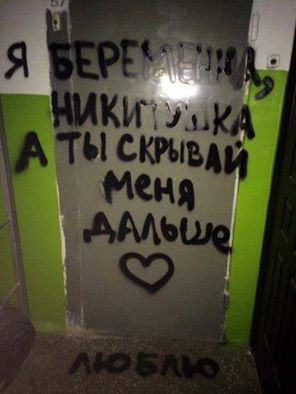 57
Я БЕРЕМЕННА,
НИКИТУШКА
А ТЫ СКРЫВАЙ
МЕНЯ
ДАЛЬШЕ
ЛЮБЛЮ